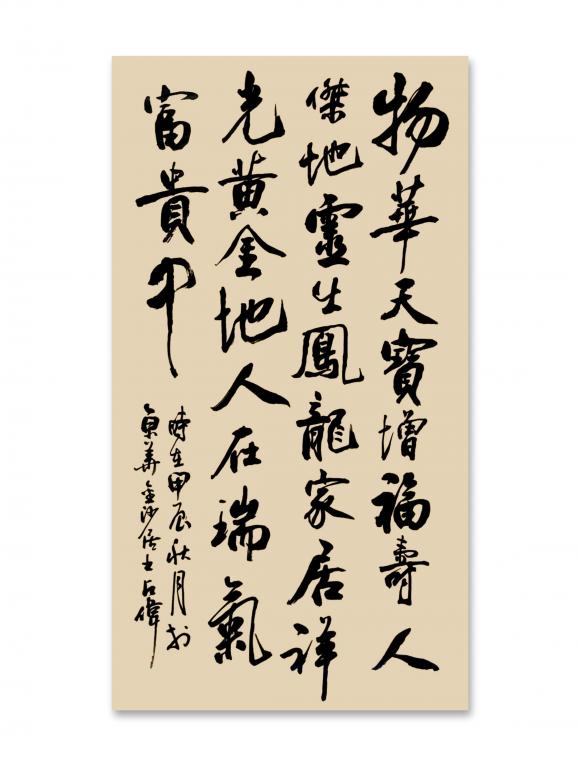 物華天寶增福壽人
傑地靈生鳳龍家居祥
光黄金地人在瑞氣
富貴中
時在甲辰秋月於
京華金沙居士偉